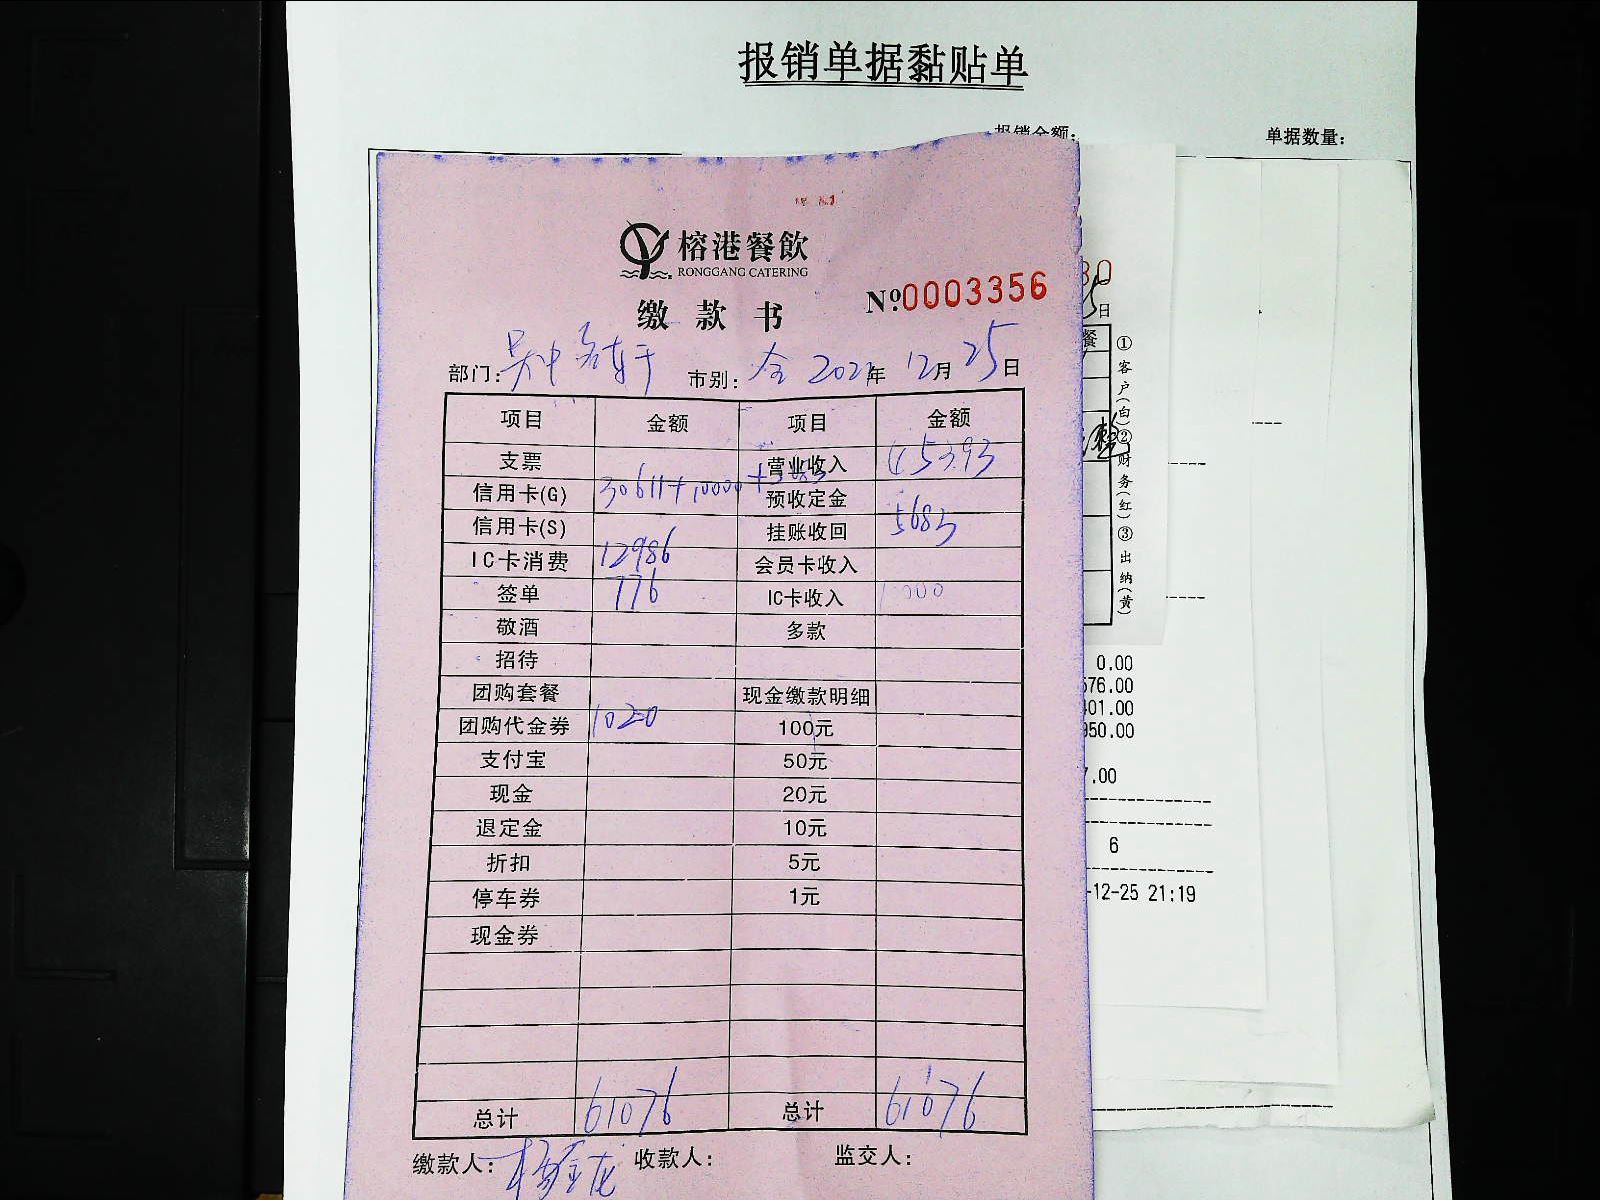 报销单据黏贴单
报销金额: 单据数量:
榕港餐飲
RONGGANG CATERING
缴款书 №0003356
部门: 市别: 全 2021年 12月 25日
项目 金额 项目 金额
支票 营业收入 45393
信用卡(G) 30611+10000+5683 预收定金
信用卡(S) 挂账收回 5683
IC卡消费 12986 会员卡收入
签单 776 IC卡收入 10000
敬酒 多款
招待
团购套餐 现金缴款明细
团购代金券 1020 100元
支付宝 50元
现金 20元
退定金 10元
折扣 5元
停车券 1元
现金券
总计 61076 总计 61076
缴款人: 杨金龙 收款人: 监交人:
30
5日
餐
①客户(白)②财务(红)③出纳(黄)
0.00
576.00
401.00
950.00
7.00
6
-12-25 21:19